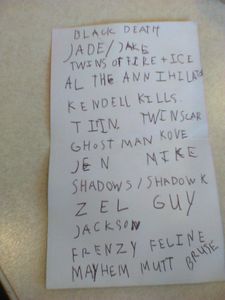 BLACK DEATH
JADE/JAKE
TWINS OF FIRE + ICE
AL THE ANNIHILATOR
KENDELL KILLS.
TWINSCAR
GHOST MAN KOVE
JEN MIKE
SHADOWS/SHADOW K
ZEL GUY
JACKSON
FRENZY FELINE
MAYHEM MUTT BRUSE